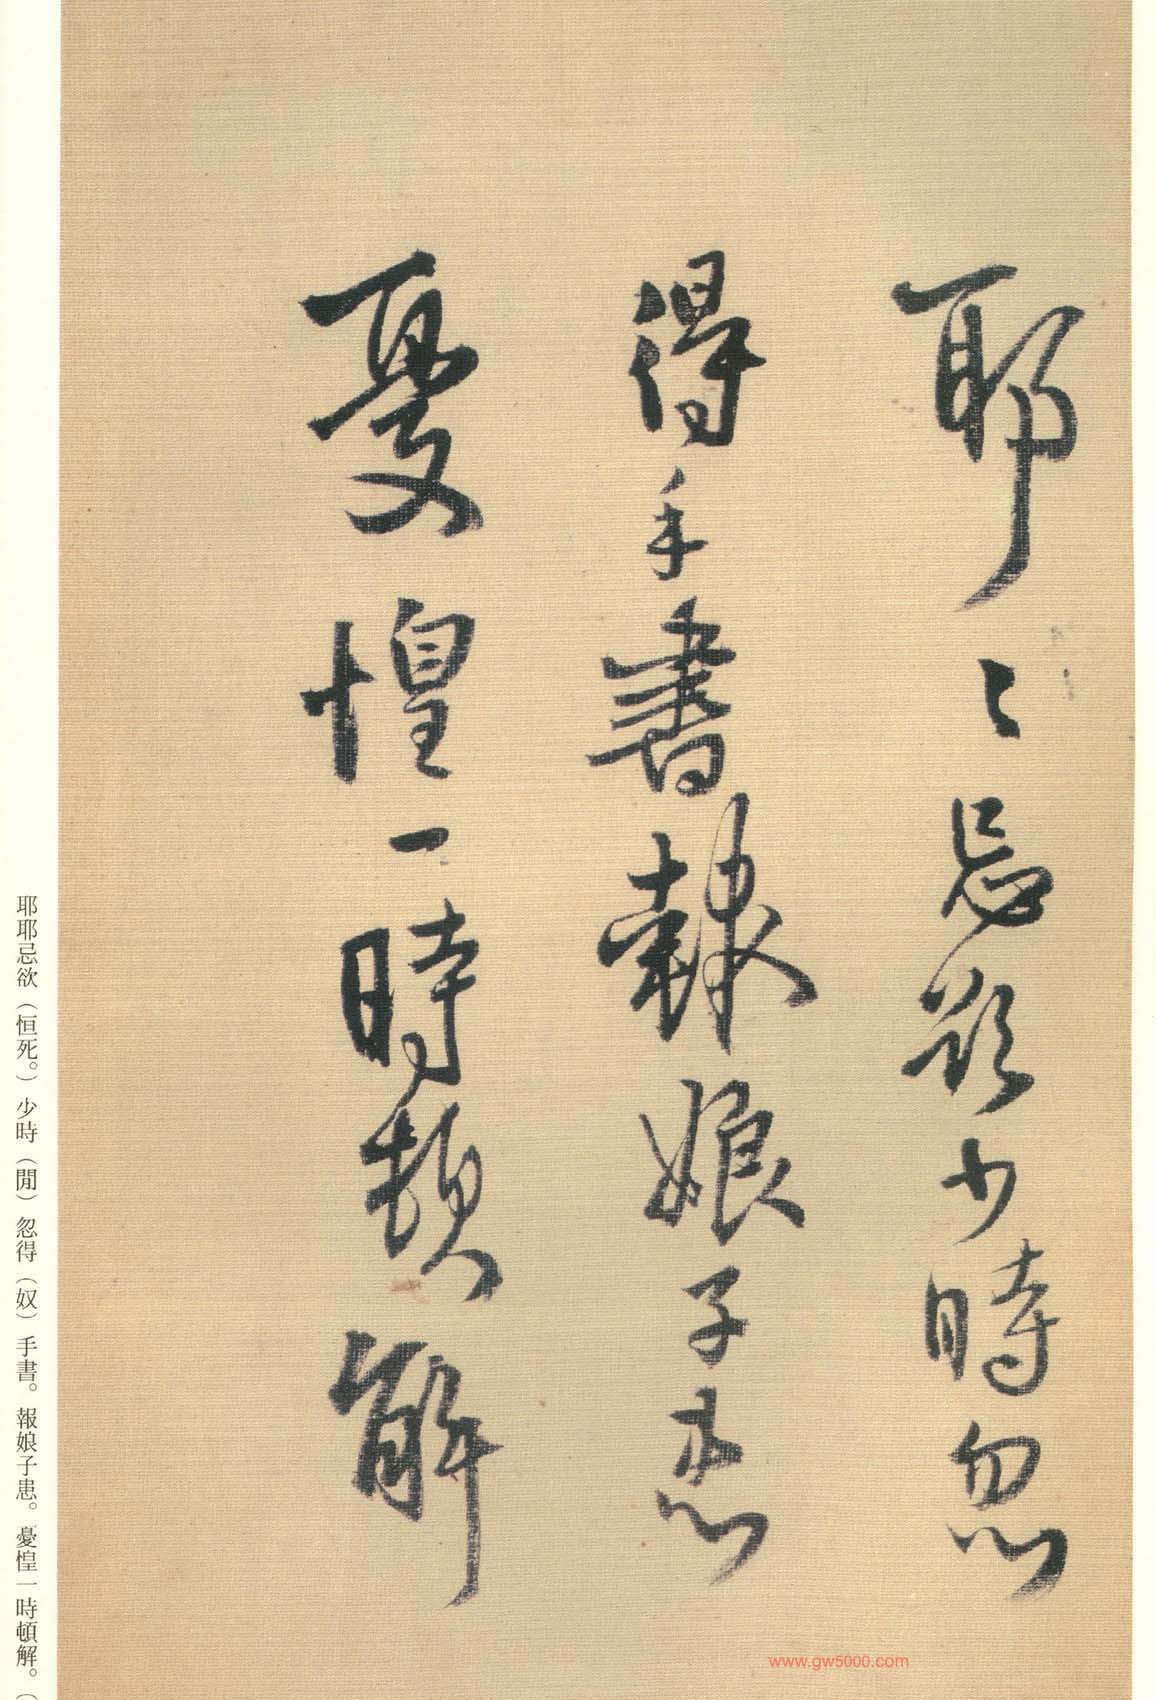 耶〻忌欲少時忽
得手書報娘子患
憂惶一時頓解
耶耶忌欲（恒死。）少時（閒）忽得（奴）手書。報娘子患。憂惶一時頓解。（
www.gw5000.com